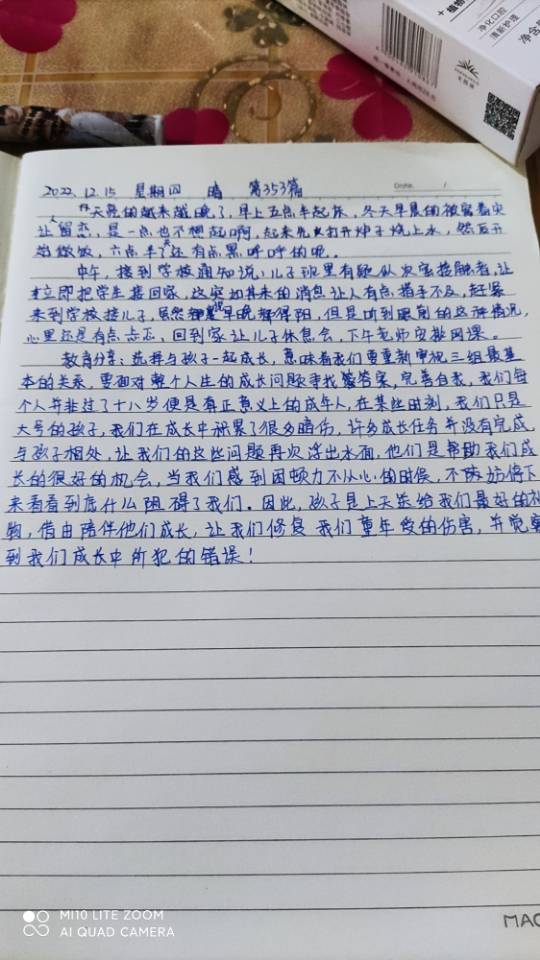 + 植物
净化口腔
清新护理
净含
Date. /
2022.12.15 星期四 晴 第353篇
天亮的越来越晚了,早上五点半起床,冬天早晨的被窝着实
让人留恋,是一点也不想起啊,起来先打开炉子烧上水,然后开
始做饭,六点半了还有点黑呼呼的呢。
中午,接到学校通知说,儿子班里有疑似次密接触者,让
立即把学生接回家,这突如其来的消息让人有点措手不及,赶紧
来到学校接儿子,虽然都说早晚都得阳,但是听到眼前的这种情况,
心里还是有点忐忑,回到家让儿子休息会,下午老师安排网课。
教育分享:选择与孩子一起成长,意味着我们要重新审视三组最基
本的关系,要面对整个人生的成长问题寻找答案,完善自我,我们每
个人并非过了十八岁便是真正意义上的成年人,在某些时刻,我们只是
大号的孩子,我们在成长中积累了很多暗伤,许多成长任务并没有完成,
与孩子相处,让我们的这些问题再次浮出水面,他们是帮助我们成
长的很好的机会,当我们感到困顿力不从心的时候,不妨停下
来看看到底什么阻碍了我们。因此,孩子是上天送给我们最好的礼
物,借由陪伴他们成长,让我们修复我们童年受的伤害,并觉察
到我们成长中所犯的错误!
MI 10 LITE ZOOM
AI QUAD CAMERA
MAO